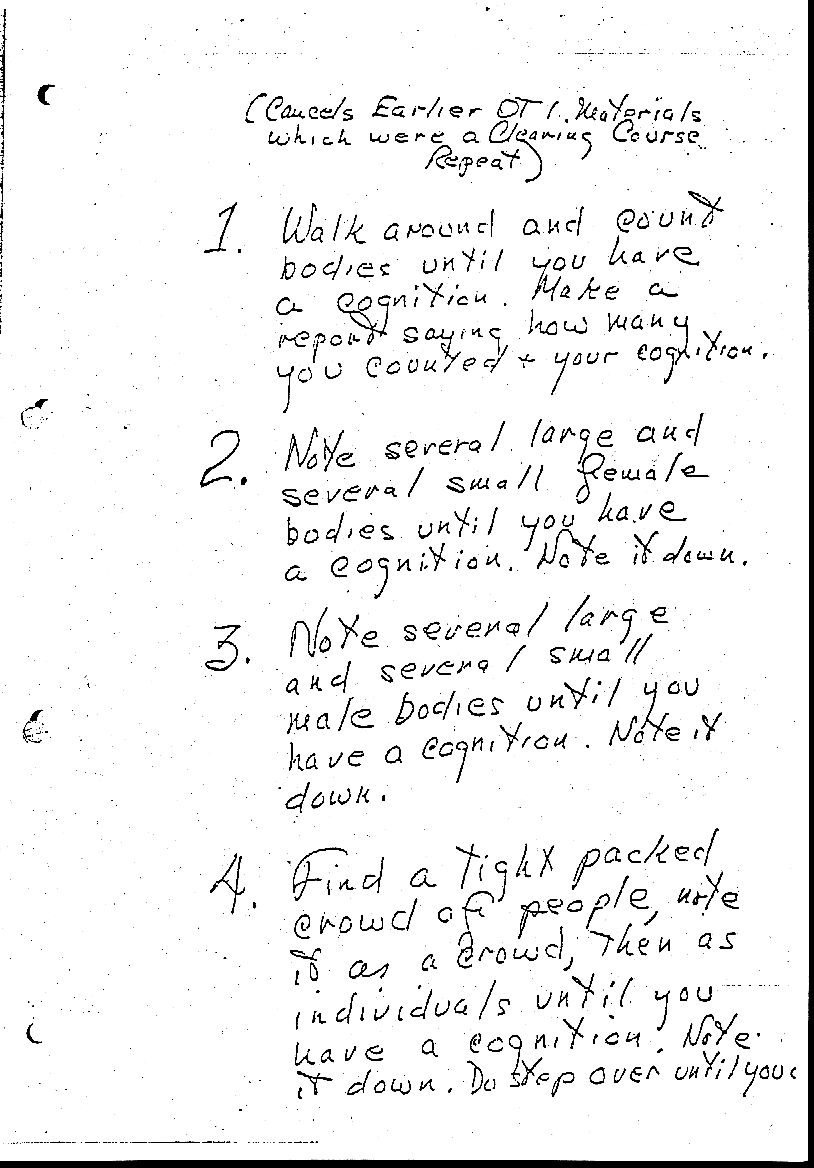 (Cancels Earlier OT 1. Materials
which were a Clearing Course
Repeat)
1. Walk around and count
bodies until you have
a cognition. Make a
report saying how many
you counted + your cognition.
2. Note several large and
several small female
bodies until you have
a cognition. Note it down.
3. Note several large
and several small
male bodies until you
have a cognition. Note it
down.
4. Find a tight packed
crowd of people, note
it as a crowd, Then as
individuals until you
have a cognition. Note
it down. Do step over until you c